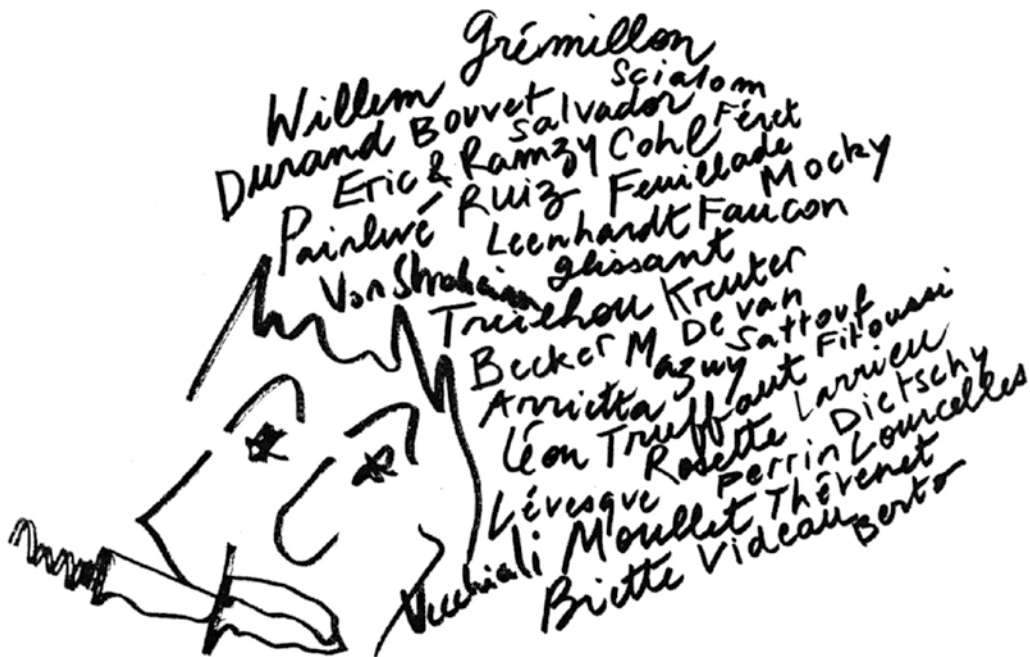 Grémillon
Willem Scialom
Durand Bouvet Salvador Féret
Eric & Ramzy Cohl
Painlevé Ruiz Feuillade Mocky
Leenhardt Faucon
Von Stroheim glissant
Treilhou Kreuter
Becker Mazuy De Van
Arrietta Sattouf Fitoussi
Léon Truffaut Larrieu
Rosette Dietschy
Lévesque Perrin Lourcelles
Vecchiali Moullet Thévenet
Briette Videau Berto